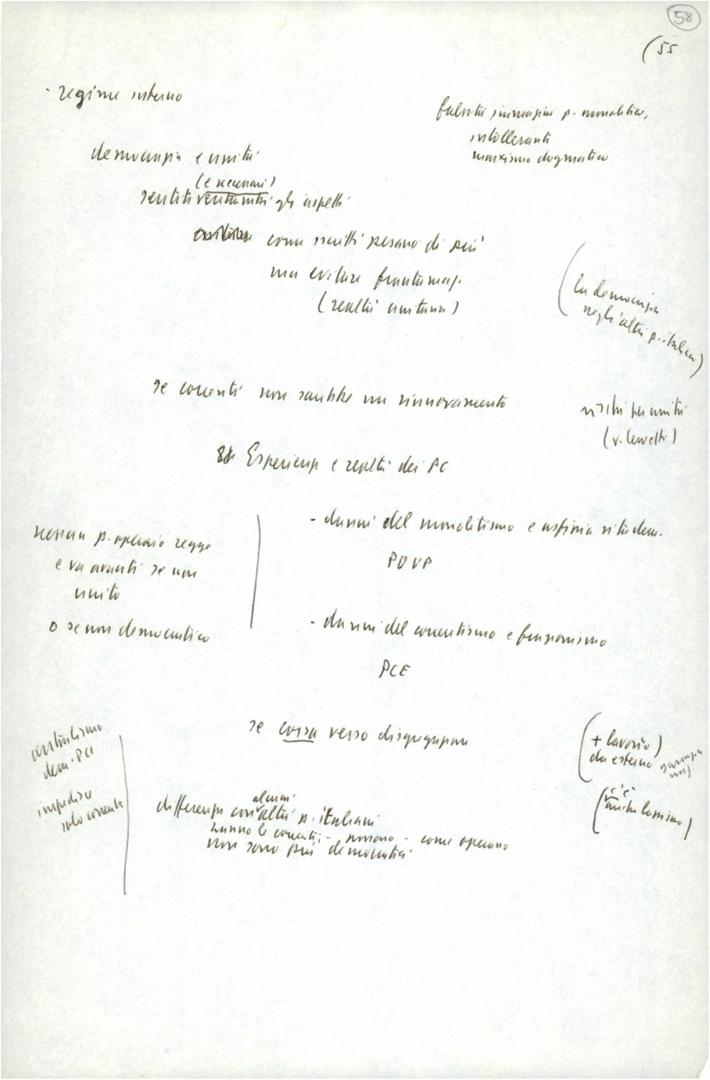 58
(55
- regime interno
falsità immagine p. monolitico,
intolleranti
marxismo dogmatico
democrazia e unità
(e necessari)
sentiti entrambi gli aspetti
come scritti pesano di più
ma evitare
(realtà unitaria)
(la democrazia
negli altri p. italiani)
se correnti non sarebbe un rinnovamento
rischi per unità
(v. )
Esperienze e realtà dei PC
- danni del monolitismo e asfissia vita dem.
POUP
nessun p. operaio regge
e va avanti se non
unito
o se non democratico
- danni del correntismo e frazionismo
PCE
se corsa verso disgregazione
(+ lavorio)
da esterno
centralismo
dem. PCI
impedisce
solo correnti
(c'è
anche )
differenze con alcuni altri p. italiani
hanno le correnti - - come operano
non sono più democratici